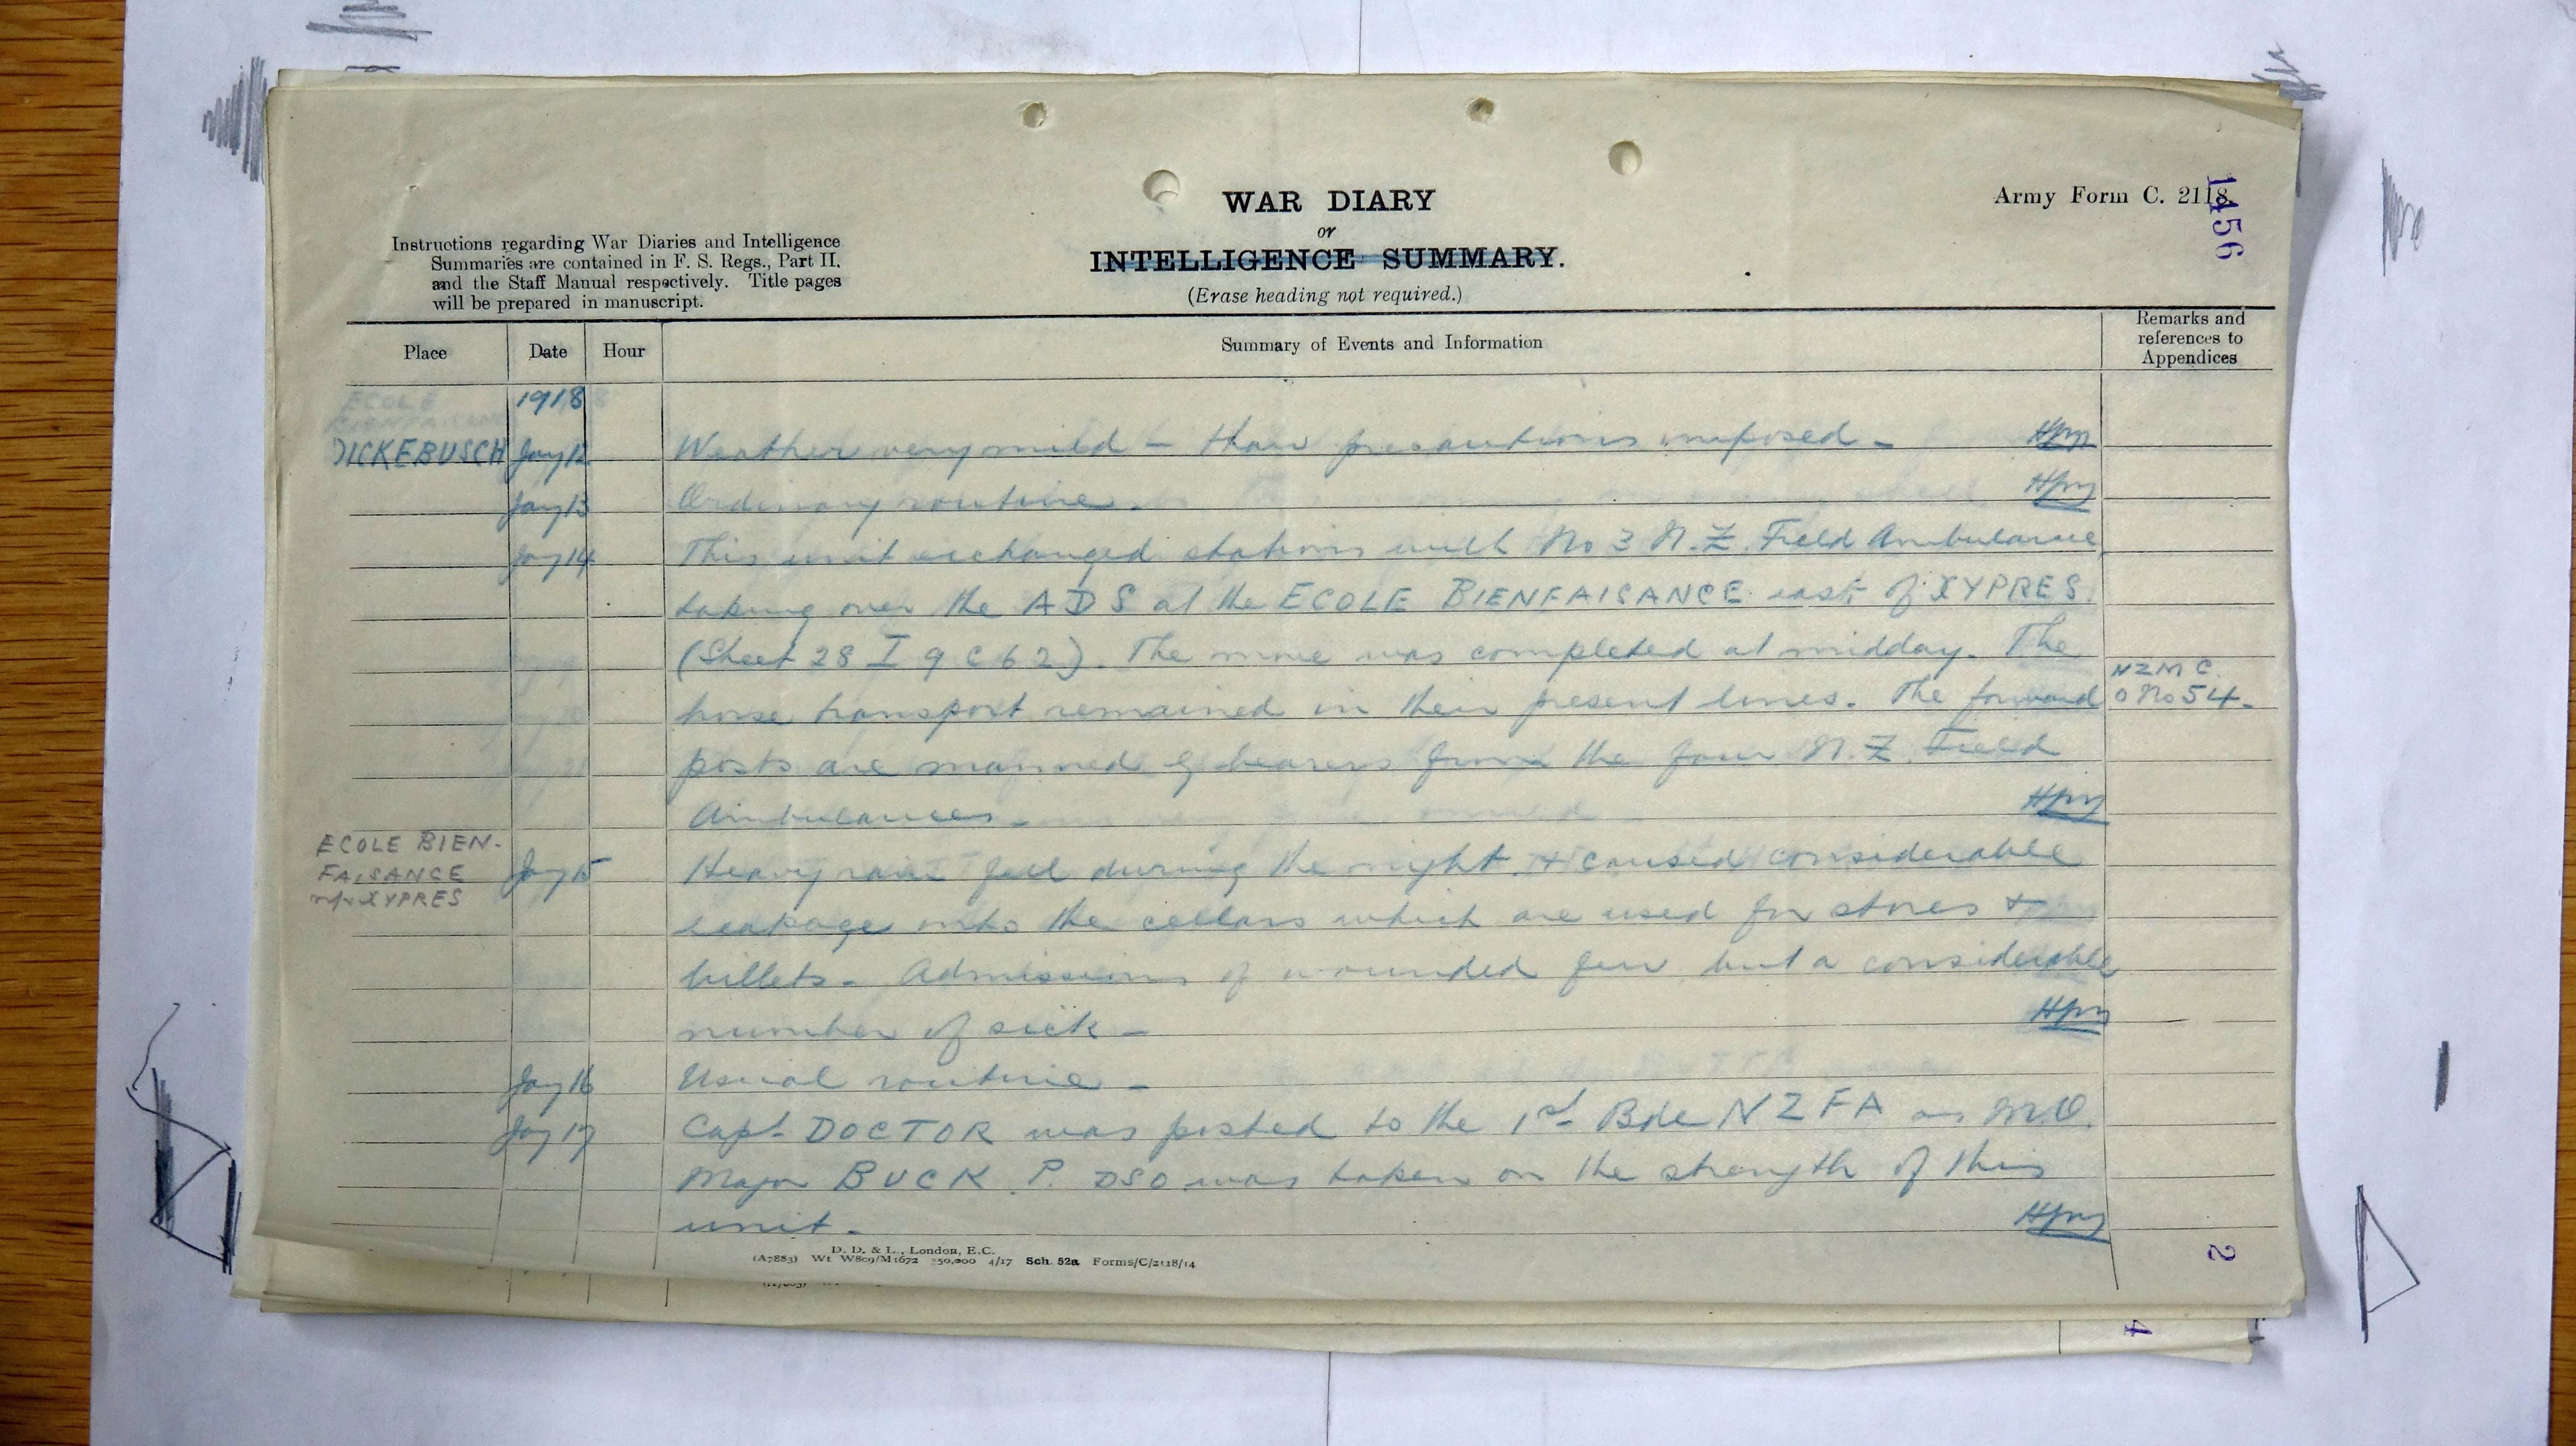 WAR DIARY
or
INTELLIGENCE SUMMARY.
(Erase heading not required.)
Army Form C. 2118.
1456
Instructions regarding War Diaries and Intelligence
Summaries are contained in F. S. Regs., Part II.
and the Staff Manual respectively. Title pages
will be prepared in manuscript.
Place Date Hour Summary of Events and Information Remarks and references to Appendices
ECOLE 1918
DICKEBUSCH Jany 12 Weather very mild – thaw precautions imposed –
Jany 13 Ordinary routine.
Jany 14 This unit exchanged stations with No 3 N.Z. Field Ambulance,
taking over the ADS at the ECOLE BIENFAISANCE east of XYPRES.
(Sheet 28 I 9 c 6 2). The move was completed at midday. The
horse transport remained in their present lines. The forward NZMC
posts are manned by bearers from the four N.Z. Field O No 54.
Ambulances –
ECOLE BIEN-
FAISANCE Jany 15 Heavy rain fell during the night & caused considerable
XYPRES
leakage into the cellars which are used for stores &
billets – Admissions of wounded few but a considerable
number of sick –
Jany 16 Usual routine –
Jany 17 Capt DOCTOR was posted to the 1st Bde NZFA as M.O.
Major BUCK P. DSO was taken on the strength of this
unit –
D. D. & L., London, E.C.
(A7883) Wt W809/M1672 350,000 4/17 Sch. 52a Forms/C/2118/14
2
4